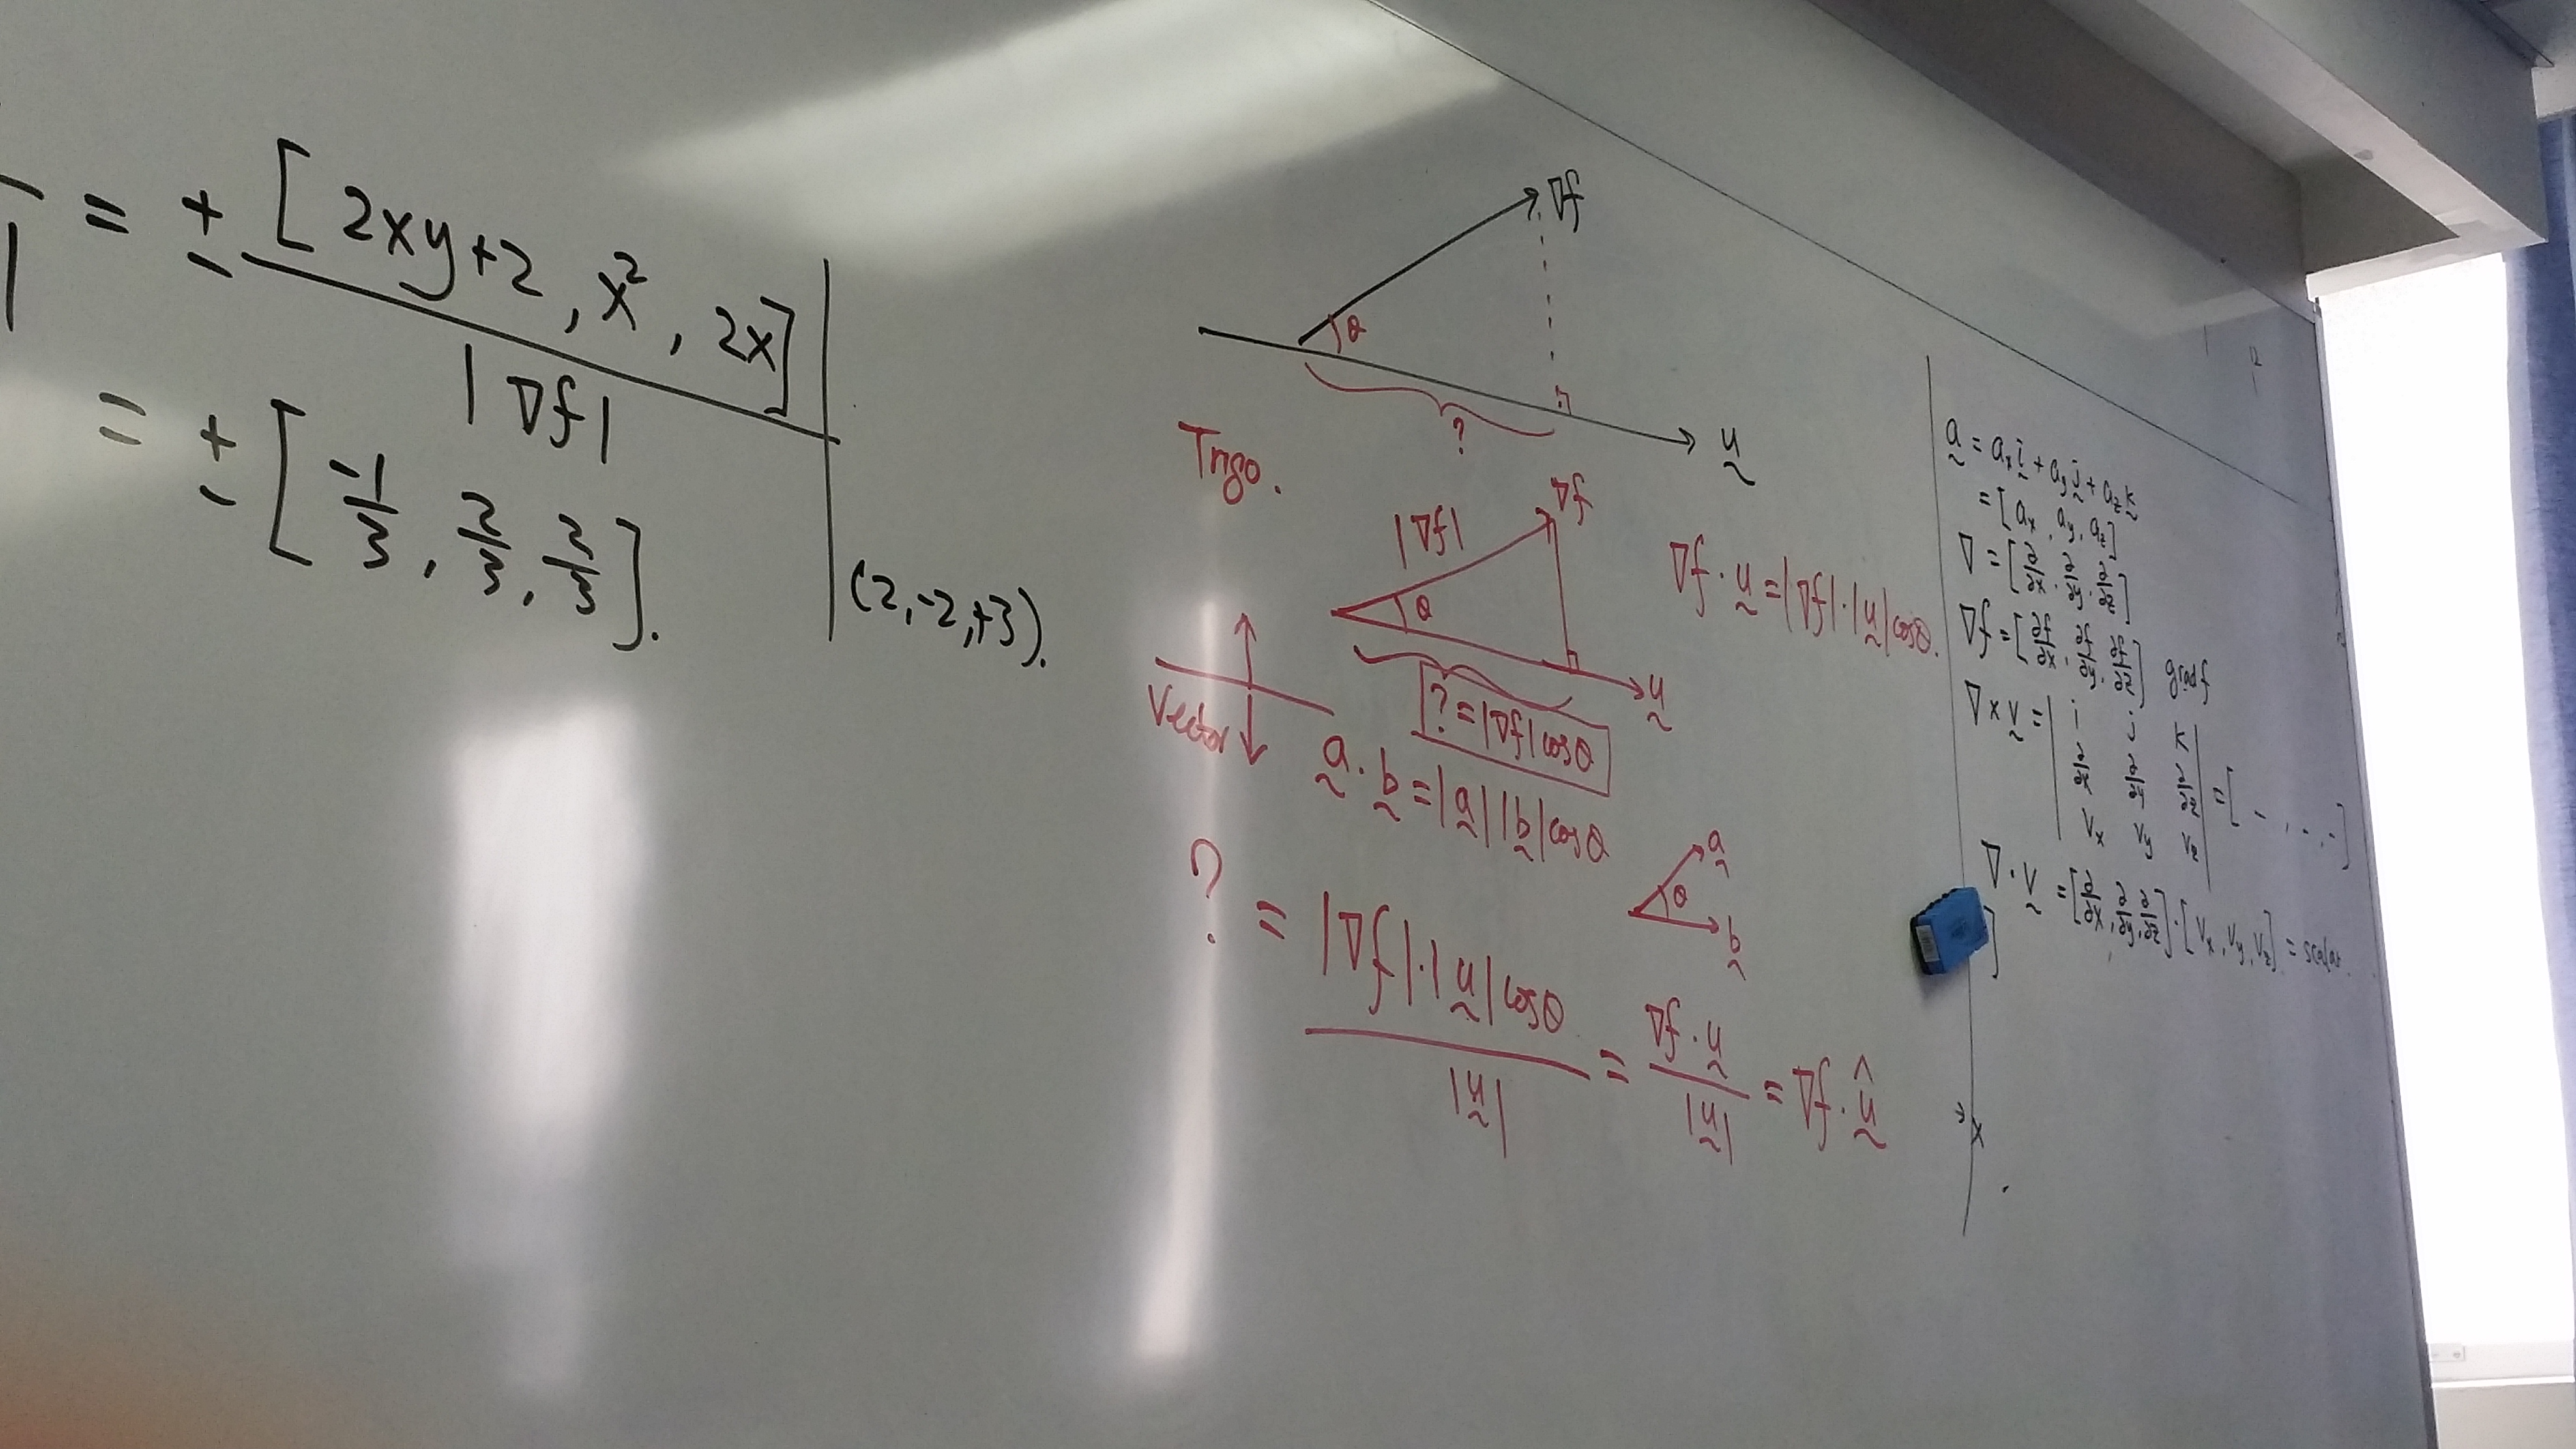 = ± [2xy+2, x², 2x] / |∇f| |
= ± [-1/3, 2/3, 2/3].
(2,-2,+3).
∇f
θ
?
u
Trigo.
∇f
|∇f|
θ
u
? = |∇f|cosθ
∇f · u = |∇f|·|u|cosθ.
Vector
a · b = |a||b|cosθ
a
θ
b
? = |∇f|·|u|cosθ / |u| = ∇f · u / |u| = ∇f · û
a = aₓi + a_y j + a_z k
= [aₓ, a_y, a_z]
∇ = [∂/∂x, ∂/∂y, ∂/∂z]
∇f = [∂f/∂x, ∂f/∂y, ∂f/∂z] grad f
∇ × v = | i j k
∂/∂x ∂/∂y ∂/∂z | = [ - , - , - ]
Vₓ V_y V_z
∇ · v = [∂/∂x, ∂/∂y, ∂/∂z] · [Vₓ, V_y, V_z] = scalar.
]
x